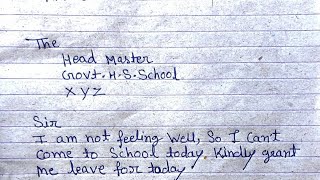 The
Head Master
Govt. H.S. School
X Y Z
Sir
I am not feeling well, So I Can't
Come to School today. Kindly grant
me leave for today